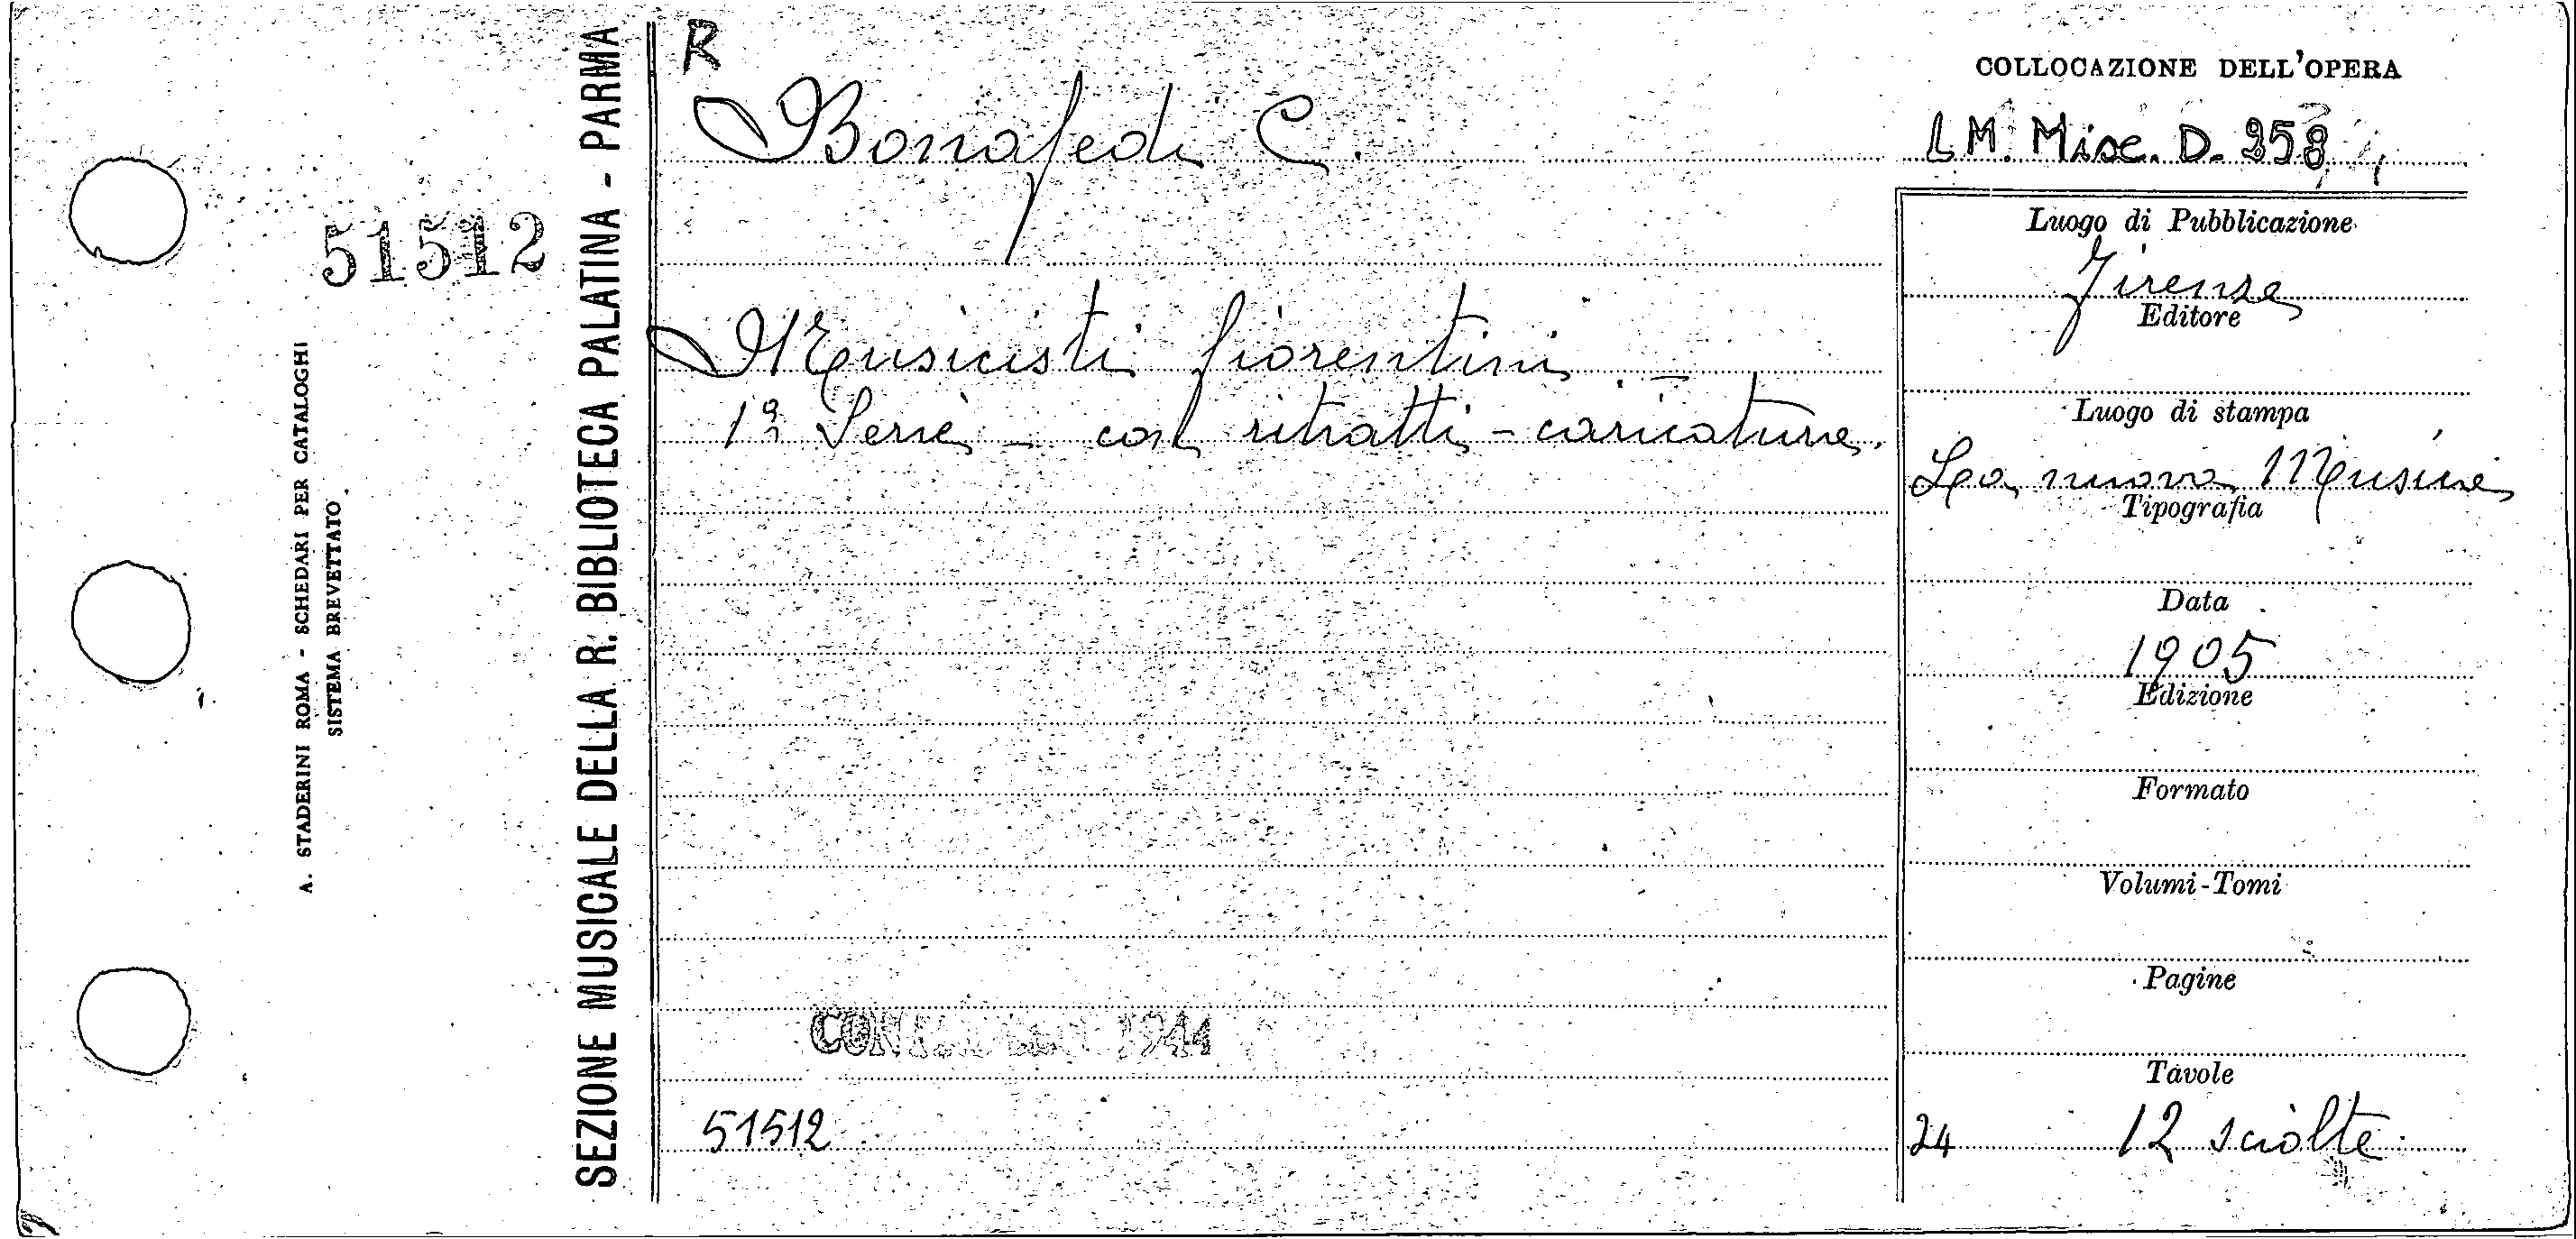 R
Bonafedi C.
Musicisti fiorentini
1ª Serie - con ritratti - caricature.
51512
51512
A. STADERINI ROMA - SCHEDARI PER CATALOGHI
SISTEMA BREVETTATO
SEZIONE MUSICALE DELLA R. BIBLIOTECA PALATINA - PARMA
COLLOCAZIONE DELL'OPERA
LM. Misc. D. 958
Luogo di Pubblicazione
Firenze
Editore
Luogo di stampa
La nuova Musica
Tipografia
Data
1905
Edizione
Formato
Volumi-Tomi
Pagine
Tavole
24 12 sciolte
1944